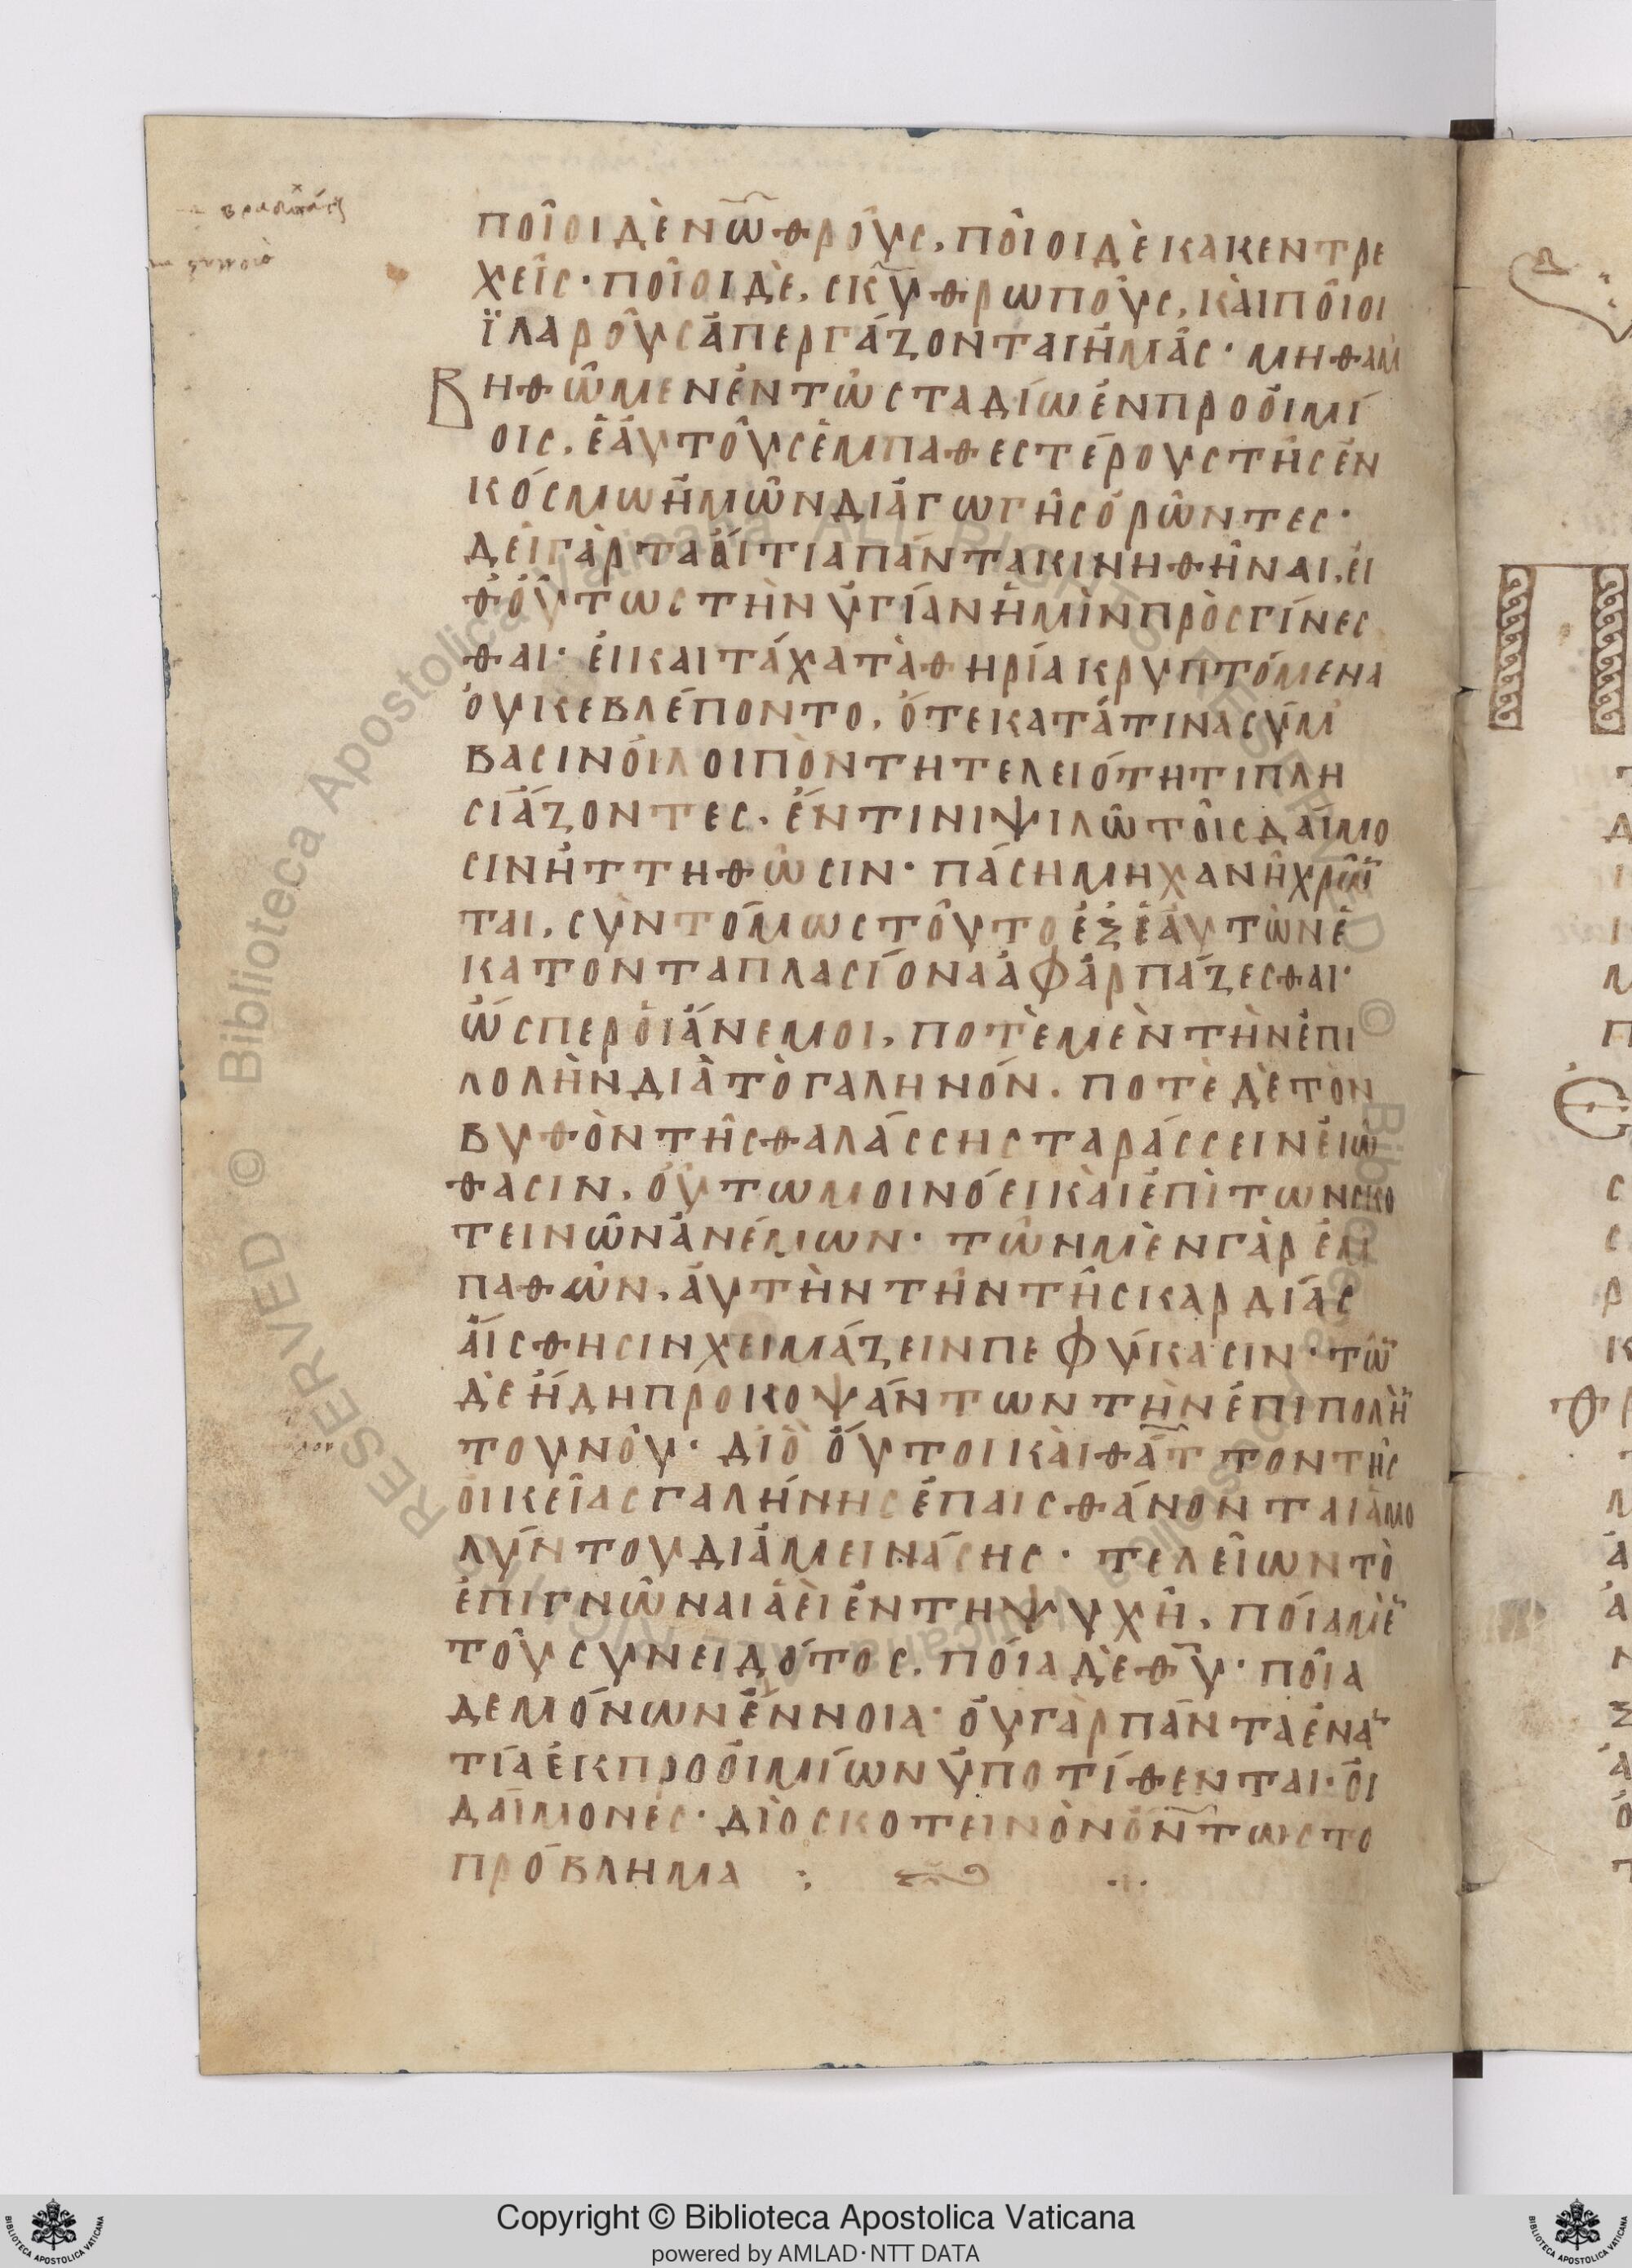 ποῖοι δὲ νωθροὺς, ποῖοι δὲ κακεντρε
χεῖς· ποῖοι δὲ, σκυθρωποὺς, καὶ ποῖοι
ϊλαροὺς ἀπεργάζονται ἡμᾶς· μὴ θαμ
Βηθῶμεν ἐν τῶ σταδίω ἐν προοιμί
οις, ἑαυτοὺς ἐμπαθεστέρους τῆς ἐν
κόσμω ἡμῶν διαγωγῆς ὁρῶντες·
δεῖ γὰρ τὰ ἄιτια πάντα κινηθῆναι, εἰ
θ ὄυτως τὴν ὑγίαν ἡμὶν πρὸσγίνεσ
θαι· ἐι και τάχα τὰ θηρία κρυπτόμενα
ὀυκ εβλέποντο, ὅτε κατά τινα σύμ
βασιν ὁι λοιπὸν τη τελειότητι πλη
σιάζοντες. ἔν τινι ψιλῶ τοῖς δαίμο
σιν ἡττηθῶσιν· πάσημηχανῆχρῶν
ται, συντόμως τοῦτο ἐξ ἑαυτὼν ἑ
κατονταπλασίονα ἀφαρπάζεσθαι·
ὥσπερ ὁι ἄνεμοι, ποτὲ μὲν τὴν ἐπι
λολὴν διὰ τὸ γαληνόν. ποτὲ δὲ τὸν
βυθὸν τῆς θαλάσσης ταράσσειν ἐιώ
θασιν, ὅυτω μοι νόει κὰι ἐπὶ των σκο
τεινῶν ἀνέμων· τῶν μὲν γὰρ ἐμ
παθῶν, ἀυτὴν τὴν τῆς καρδίας
ἄισθησιν χειμάζειν πεφύκασιν· τῶν
δε ἤδη προκοψάντων τὴν ἐπιπολὴν
του νοῦ· διὸ ὅυτοι κὰι θᾶττον τῆς
ὀικείας γαλήνης ἐπαισθάνονται ἀμο
λύντου διαμεινάσης· τελείων τὸ
ἐπιγνῶναι ἀεὶ ἐν τη ψυχῆ, ποία μὲν
τοῦ συνειδότος, ποία δὲ θυ· ποῖα
δε μόνων ἔννοια· ὀυ γὰρ πάντα ἐναν
τία ἐκ προοιμίων ὑποτίθενται· ὁι
δαίμονες· διὸ σκοτεινὸν ὄντως το
πρόβλημα :